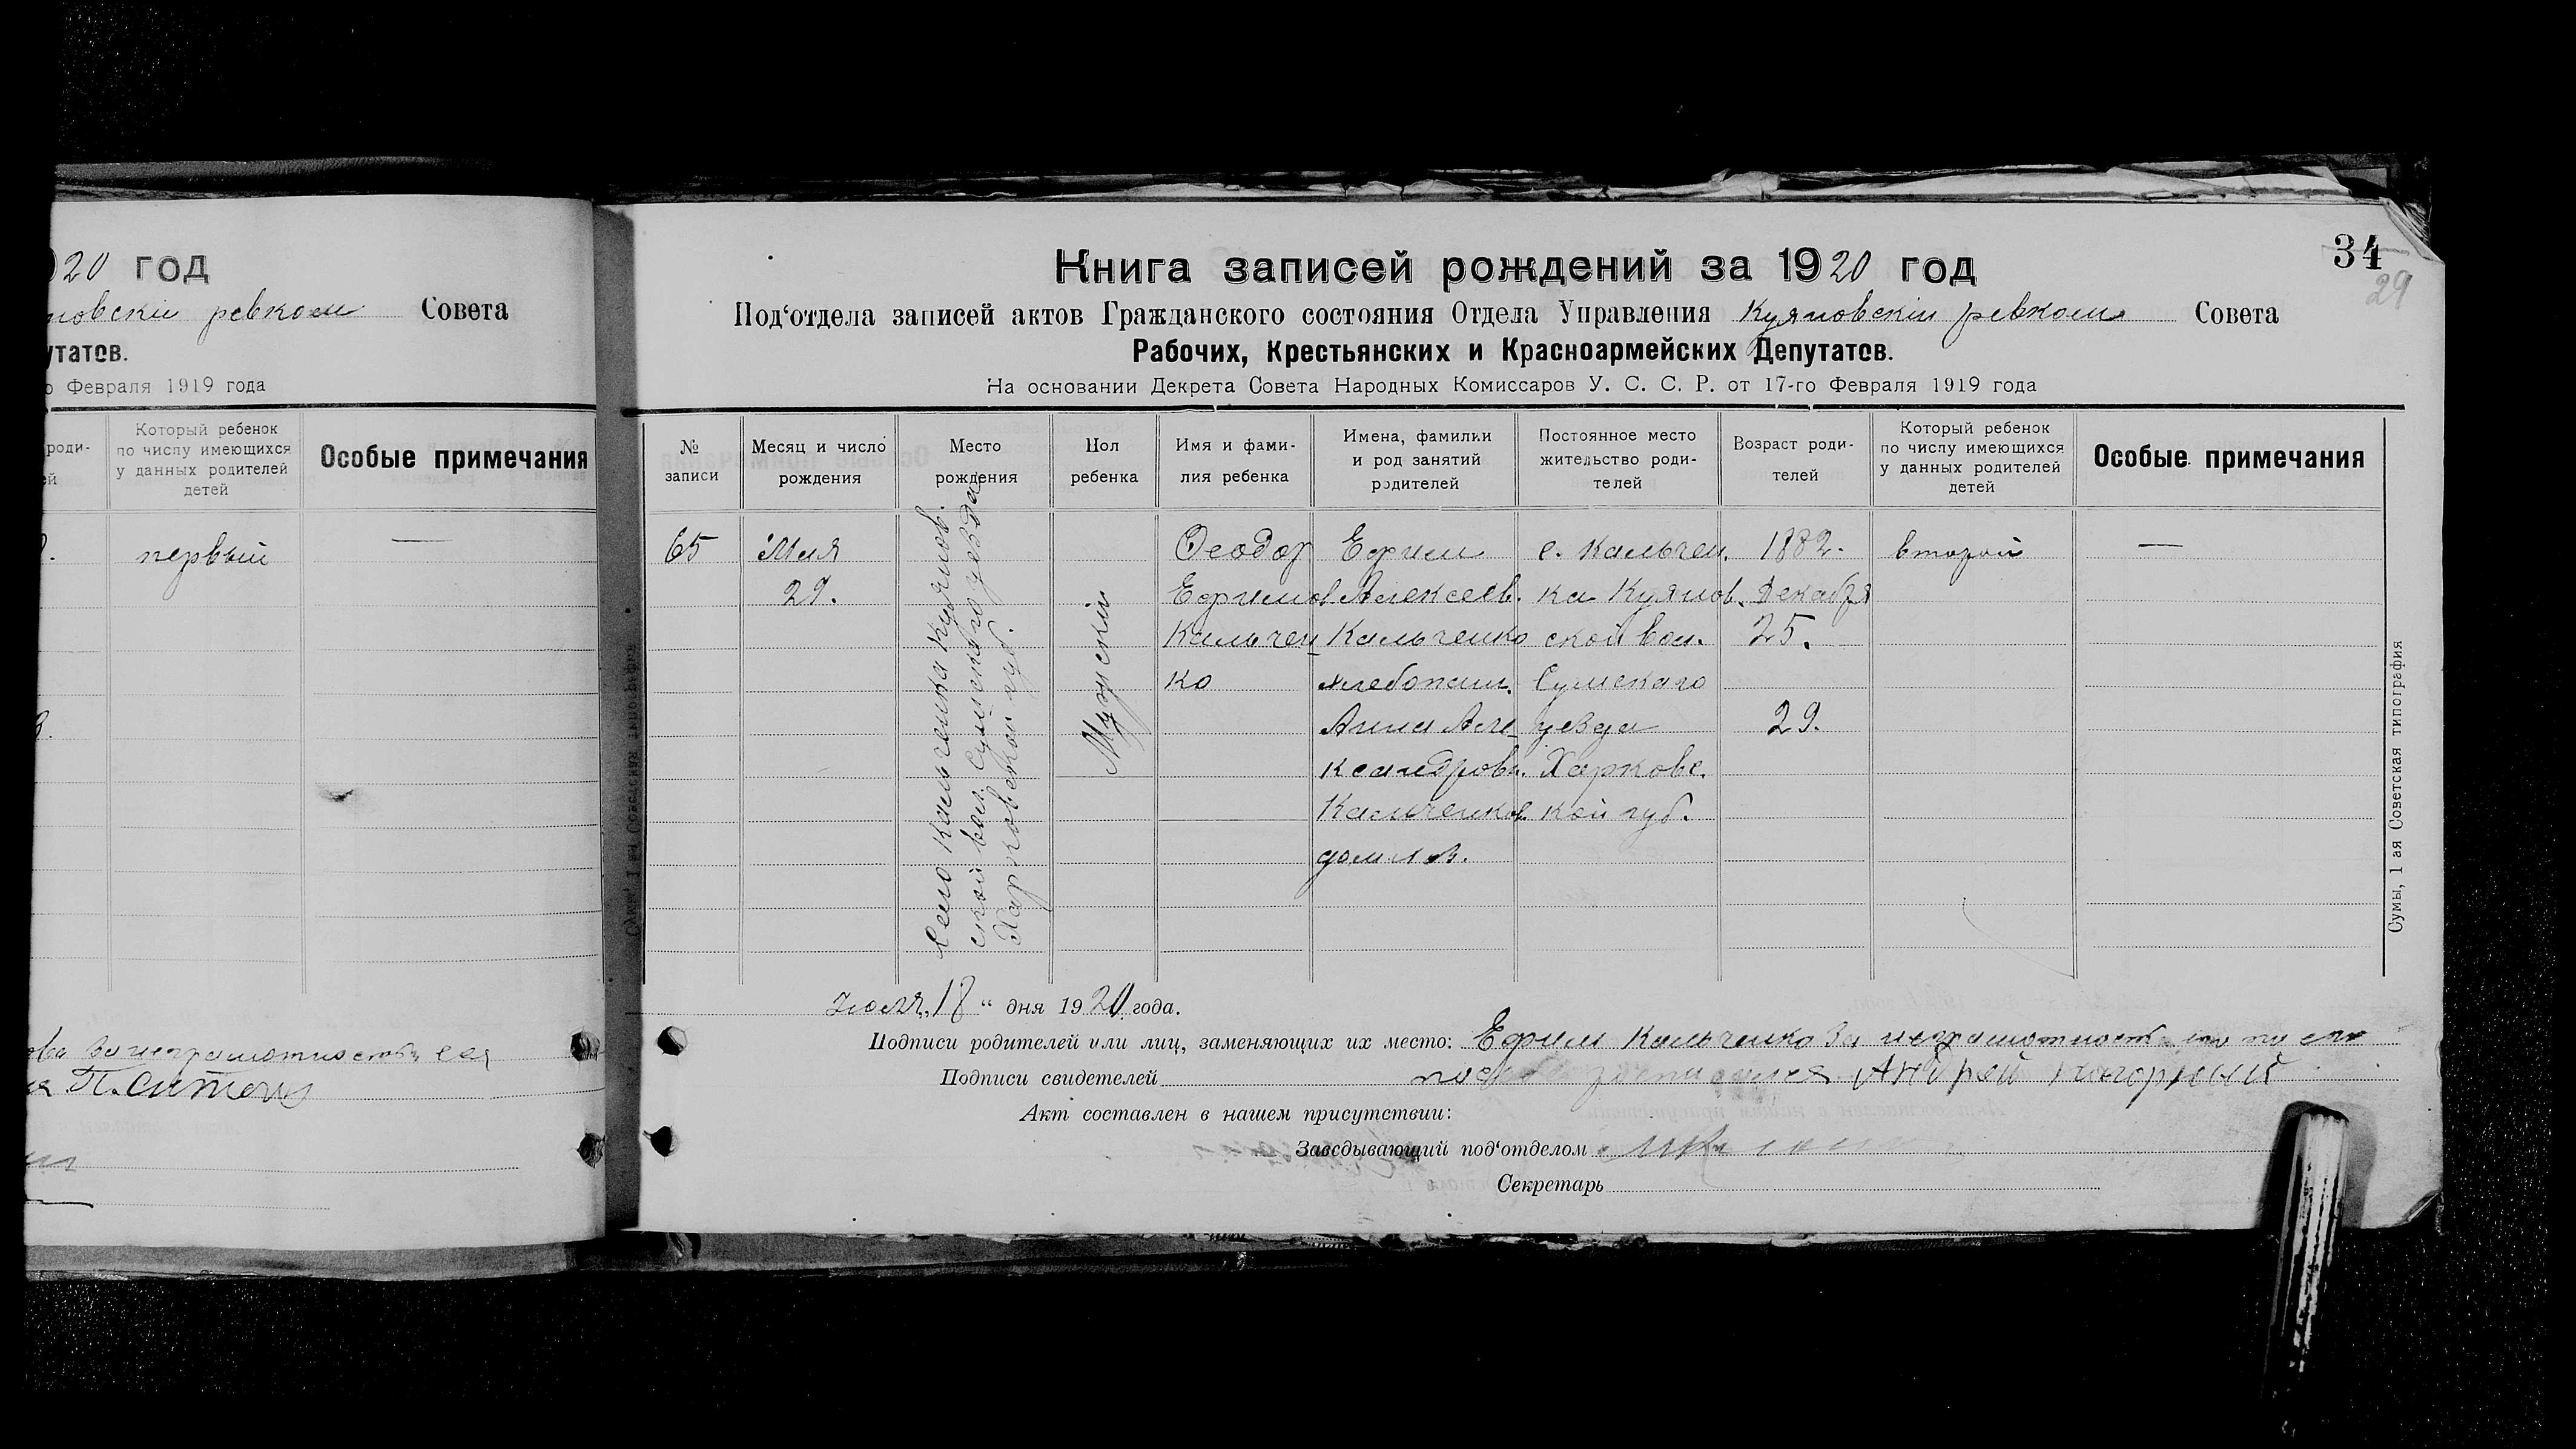 20 год
новскiй ревком Совета
утатов.
о Февраля 1919 года
роди-
ей
Который ребенок
по числу имеющихся
у данных родителей
детей
Особые примечания
первый —
за неграмотностью ея
34
29
Книга записей рождений за 1920 год
Под‘отдела записей актов Гражданского состояния Отдела Управления Куяновскiй ревком Совета
Рабочих, Крестьянских и Красноармейских Депутатов.
На основании Декрета Совета Народных Комиссаров У. С. С. Р. от 17-го Февраля 1919 года
№
записи
Месяц и число
рождения
Место
рождения
Пол
ребенка
Имя и фами-
лия ребенка
Имена, фамилии
и род занятий
родителей
Постоянное место
жительство роди-
телей
Возраст роди-
телей
Который ребенок
по числу имеющихся
у данных родителей
детей
Особые примечания
65
Мая
29.
Село Кальченки Куянов.
ской вол. Сумскаго уезда
Харьковской губ.
Мужскiй
Феодор
Ефимов
Кальчен
ко
Ефим
Алексеев.
Кальченко
хлебопаш.
Анна Але
ксандровн.
Кальченков.
с. Кальчен.
ка Куянов.
ской вол.
Сумскаго
уезда
Харьковс.
кой губ.
1882.
Декабря
25.
29.
второй
—
Июля, 18 “ дня 1920 года.
Подписи родителей или лиц, заменяющих их место: Ефим Кальченко За неграмотность
Подписи свидетелей Андрей Нагорный
Акт составлен в нашем присутствии:
Заведывающий под‘отделом
Секретарь
Сумы, 1 ая Советская типография